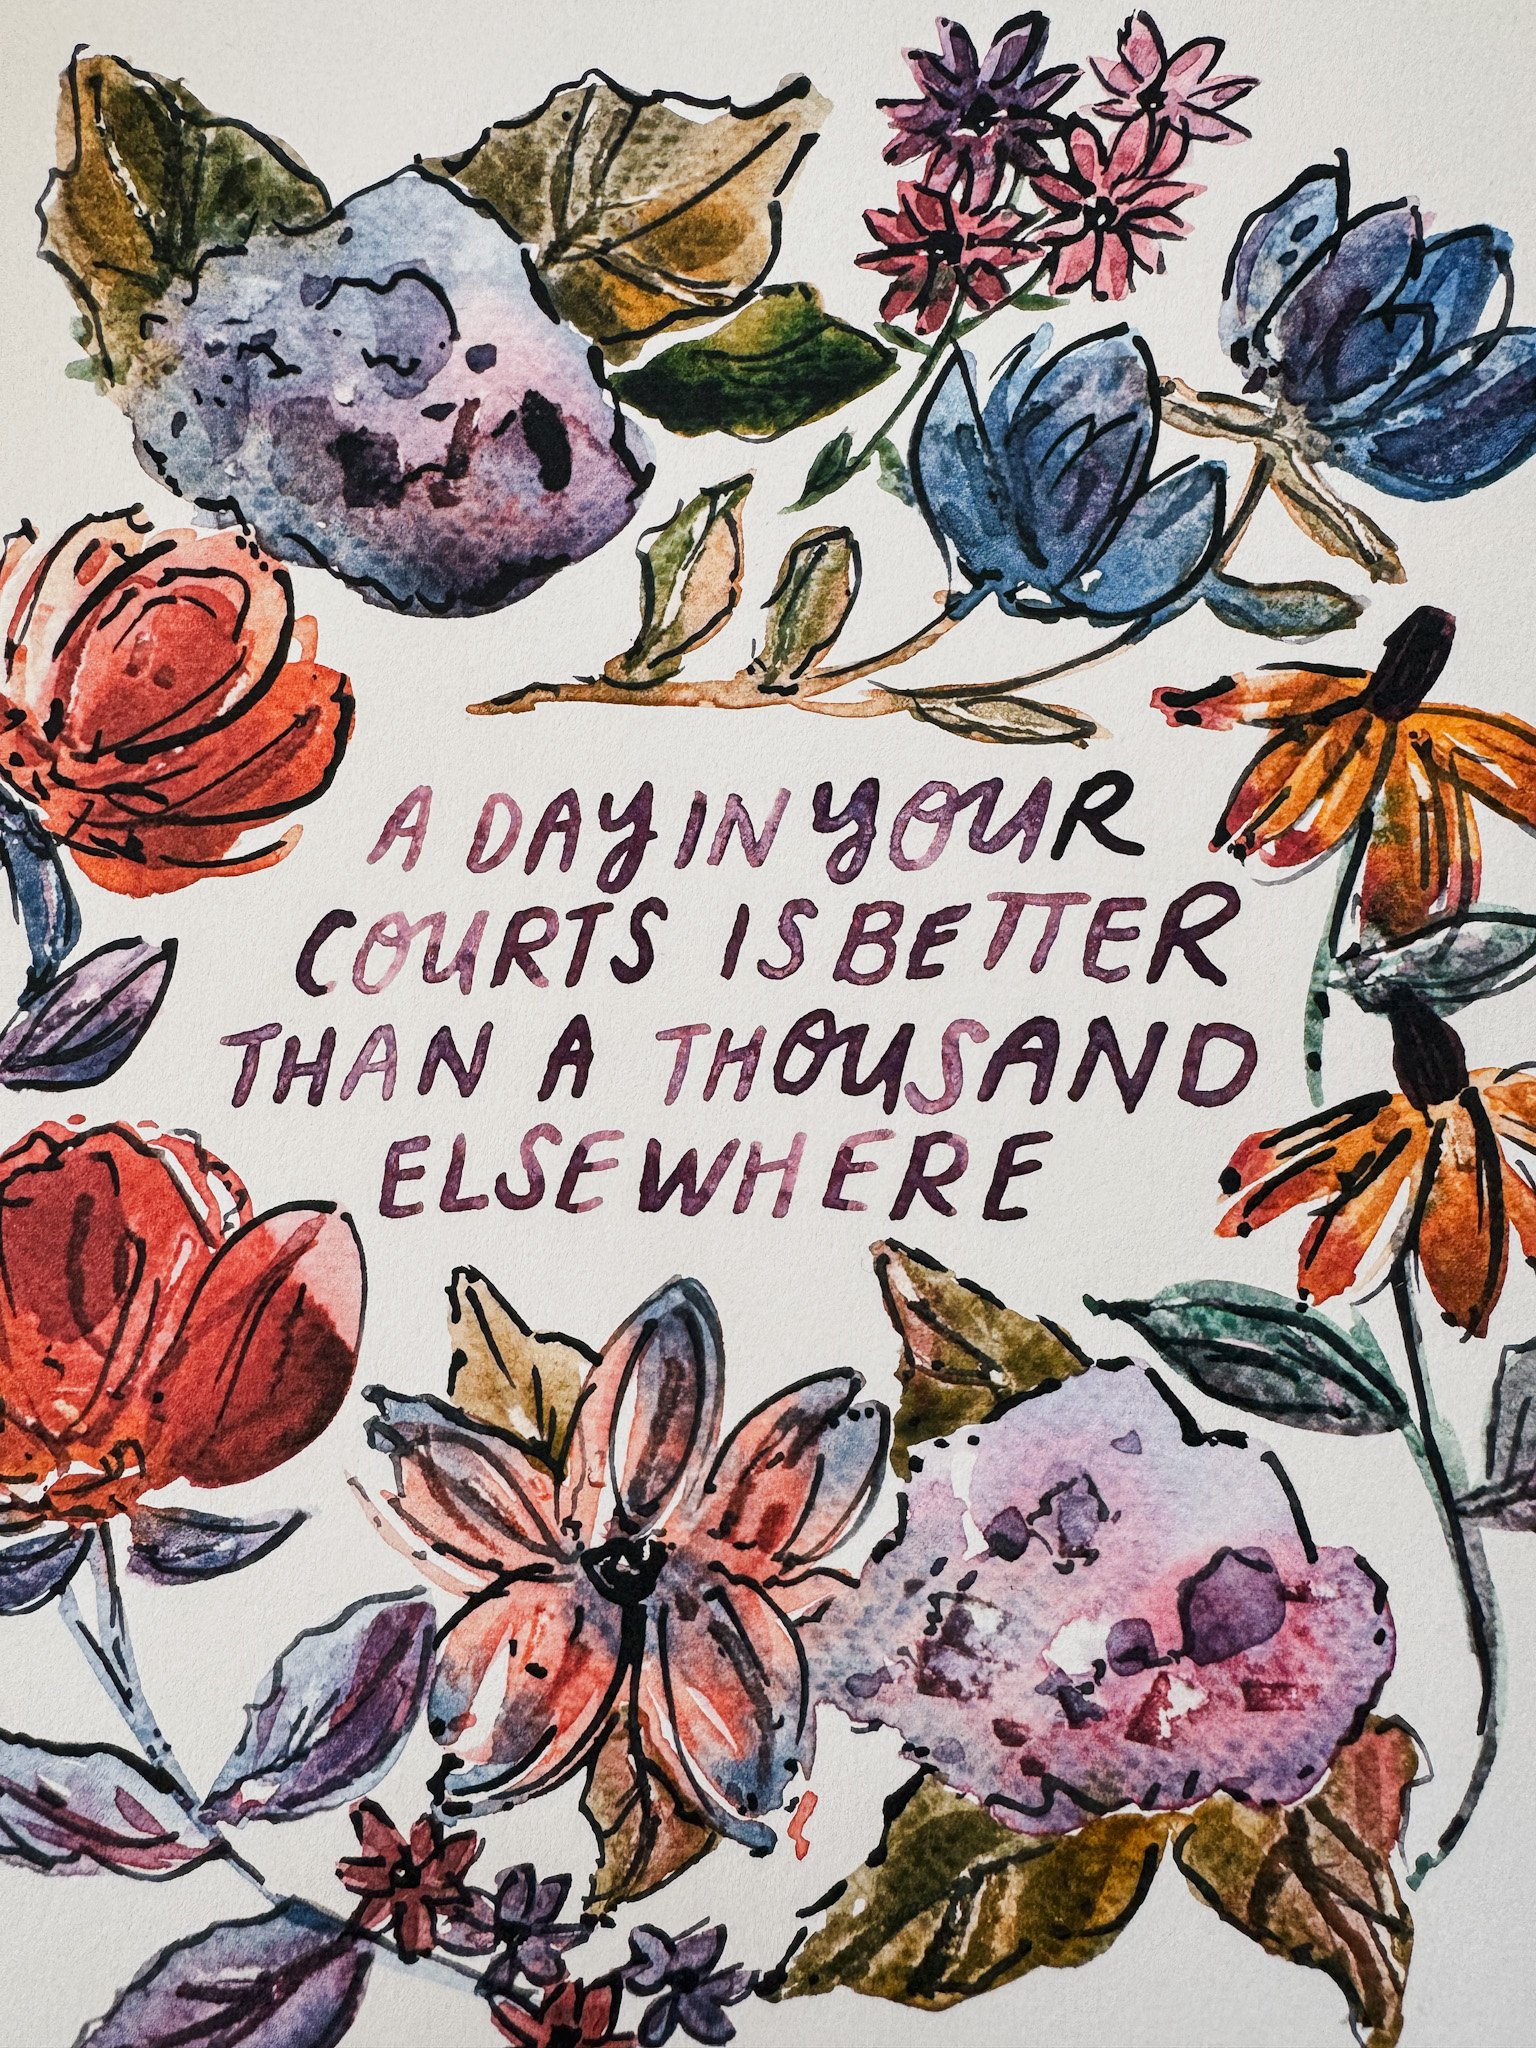 A DAY IN YOUR
COURTS IS BETTER
THAN A THOUSAND
ELSEWHERE